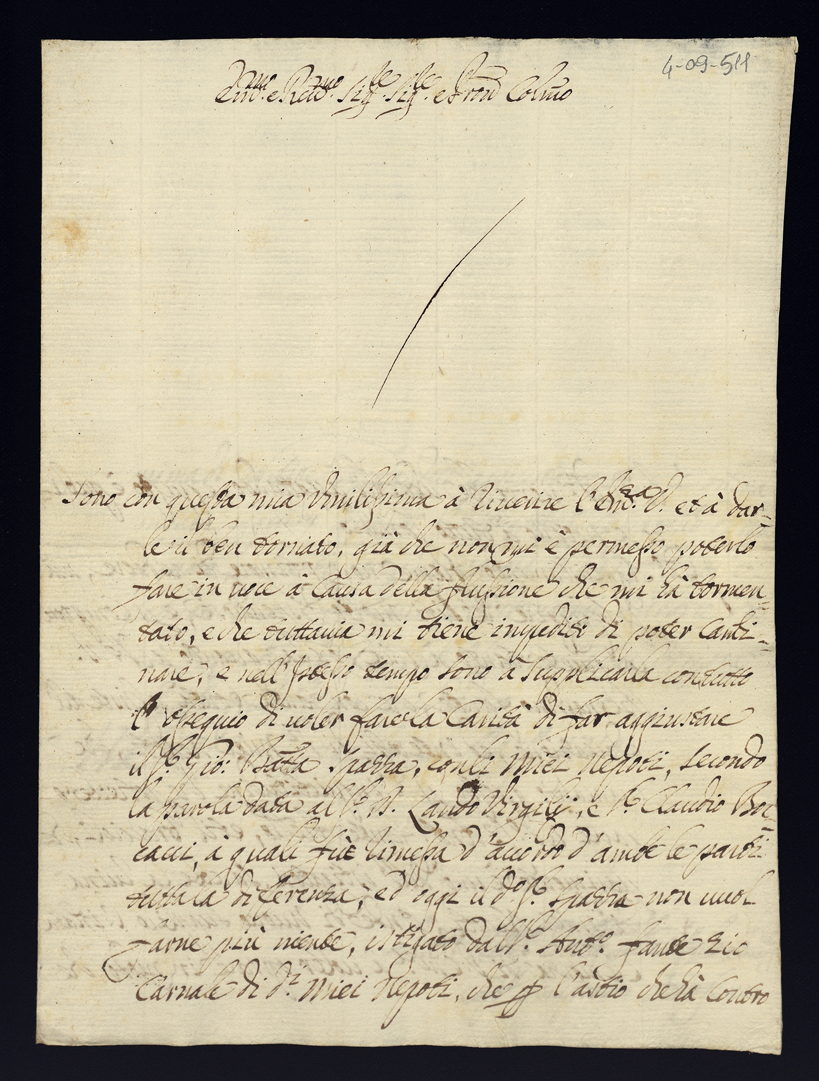 4-09-511
Em.mo e Rev.mo Sig.re Sig.re e Pron Colmo
Sono con questa mia Umilissima à riverire l'Em.za V. et à dar=
le il ben tornato, già che non mi è permesso poterlo
fare in voce à causa della flussione che mi hà tormen=
tato, e che tuttavia mi tiene impedito di poter Cami=
nare; e nell'istesso tempo sono à supplicarla con tutto
l'ossequio di voler fare la Carità di far aggiustare
il S.r Gio: Batta Spazza, con li Miei Nepoti, secondo
la parola data al S.r D. Lando Virgilij, e S.r Claudio Boc=
cacci, à quali fù rimessa d'accordo d'ambe le parti
tutta la diferenza; ed oggi il d.o S.r Spazza non vuol
farne più niente, istigato dal S.r Ant.o Fante Zio
Carnale di d.i Miei Nepoti, che p l'astio che hà Contro